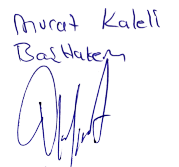 Murat Kaleli
Başhakem